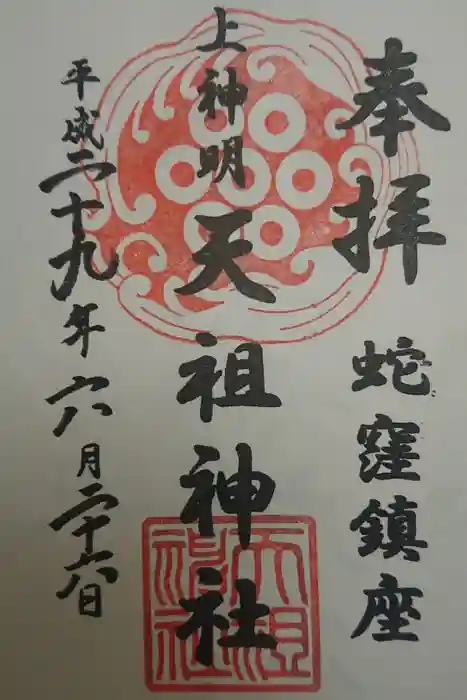 奉拝
蛇窪鎮座
上神明
天祖神社
平成二十九年六月二十六日
天祖
神社